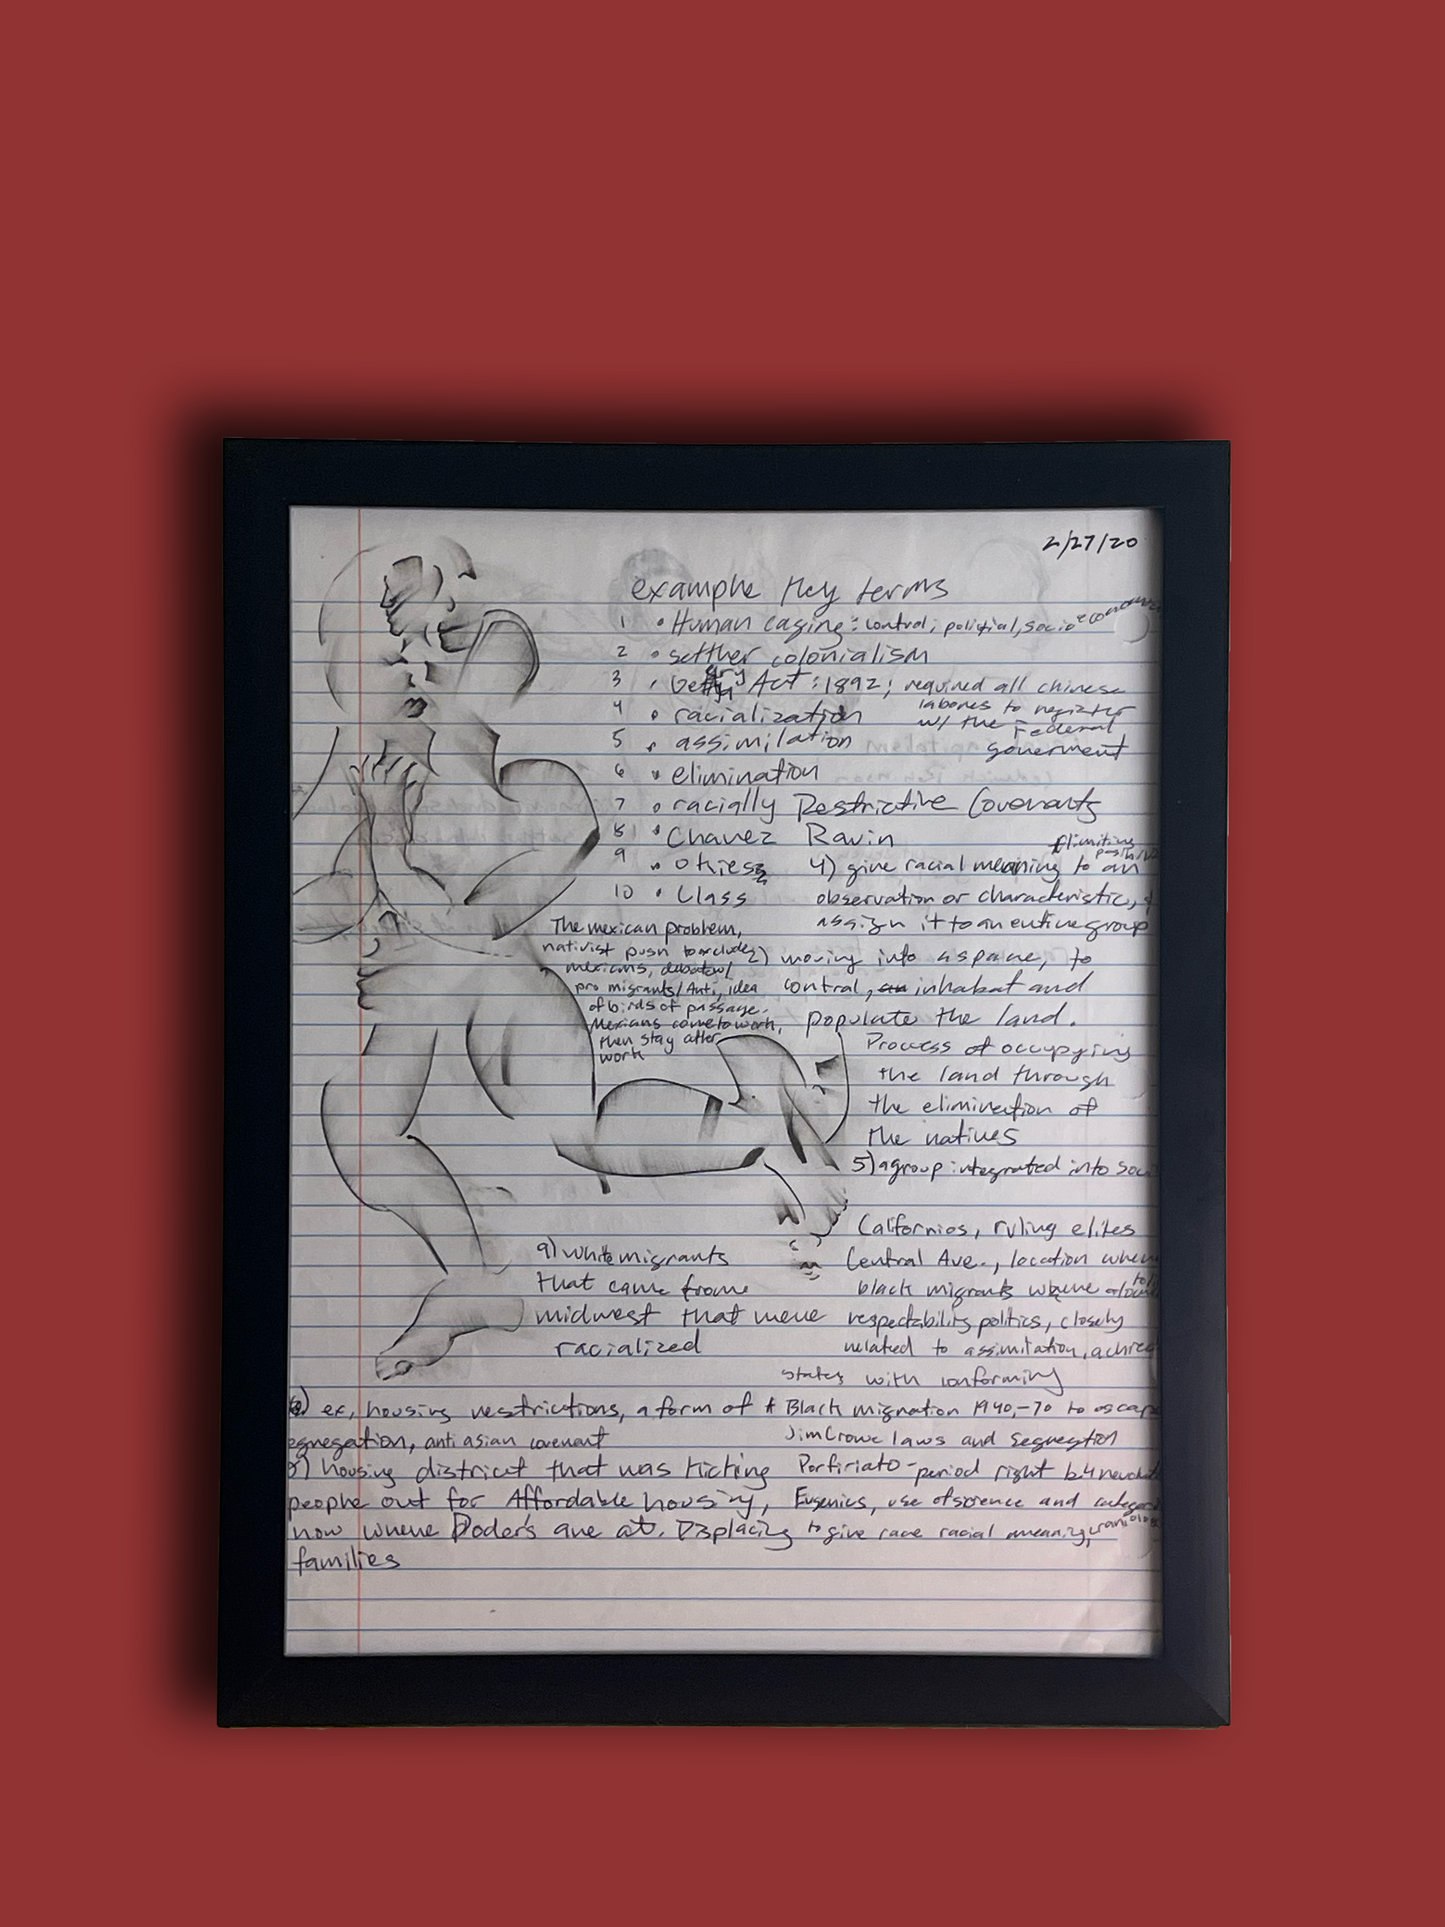 2/27/20
example Key terms
1 • Human caging: control; political, socioeconomic
2 • settler colonialism
3 • Geary Act: 1892; required all chinese
labores to register
w/ the Federal
goverment
4 • racialization
5 • assimilation
6 • elimination
7 • racially Restrictive Covenants
8 • Chavez Ravin
9 • Okies
10 • Class
4) give racial meaning to an
observation or characteristic,
assign it to an entire group
limiting
The mexican problem,
nativist push to exclude
mexicans, debate w/
pro migrants/Anti, idea
of birds of passage.
Mexicans come to work,
then stay after
work
2) moving into a space, to
control, inhabat and
populate the land.
Process of occupying
the land through
the elimination of
the natives
5) a group integrated into soc
Californios, ruling elites
Central Ave., location where
black migrants where
respectability politics, closely
related to assimilation,
states with conforming
9) white migrants
that came from
midwest that were
racialized
ex, housing restrictions, a form of
egregation, anti asian covenant
housing district that was kicking
people out for Affordable housing,
now where Doder's are at. Displacing
families
* Black migration 1940,-70 to escape
Jim Crowe laws and Segregation
Porfiriato - period right b4
Eugenics, use of science and
to give race racial meaning,